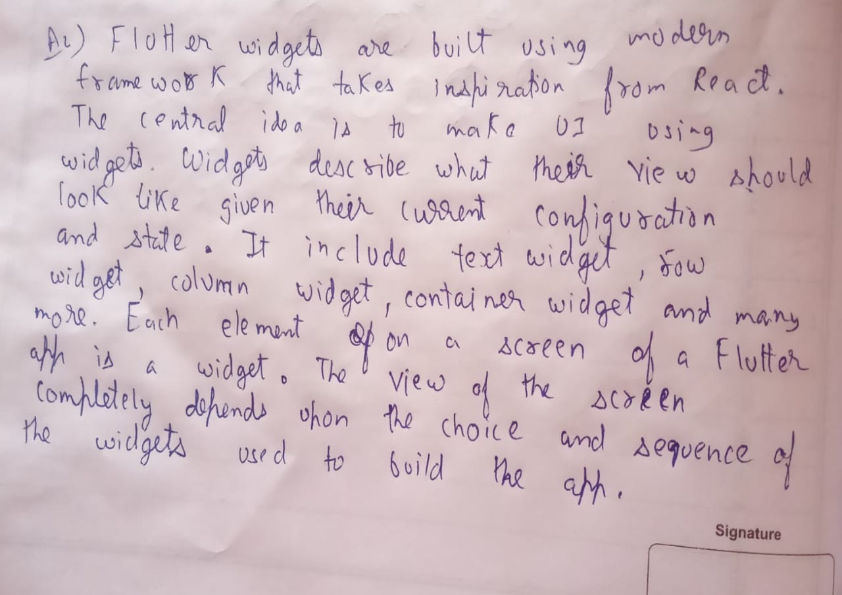 A2) Flutter widgets are built using modern
framework that takes inspiration from React.
The central idea is to make UI using
widgets. Widgets describe what their view should
look like given their current configuration
and state. It include text widget, row
widget, column widget, container widget and many
more. Each element on a screen of a Flutter
app is a widget. The view of the screen
completely depends upon the choice and sequence of
the widgets used to build the app.
Signature